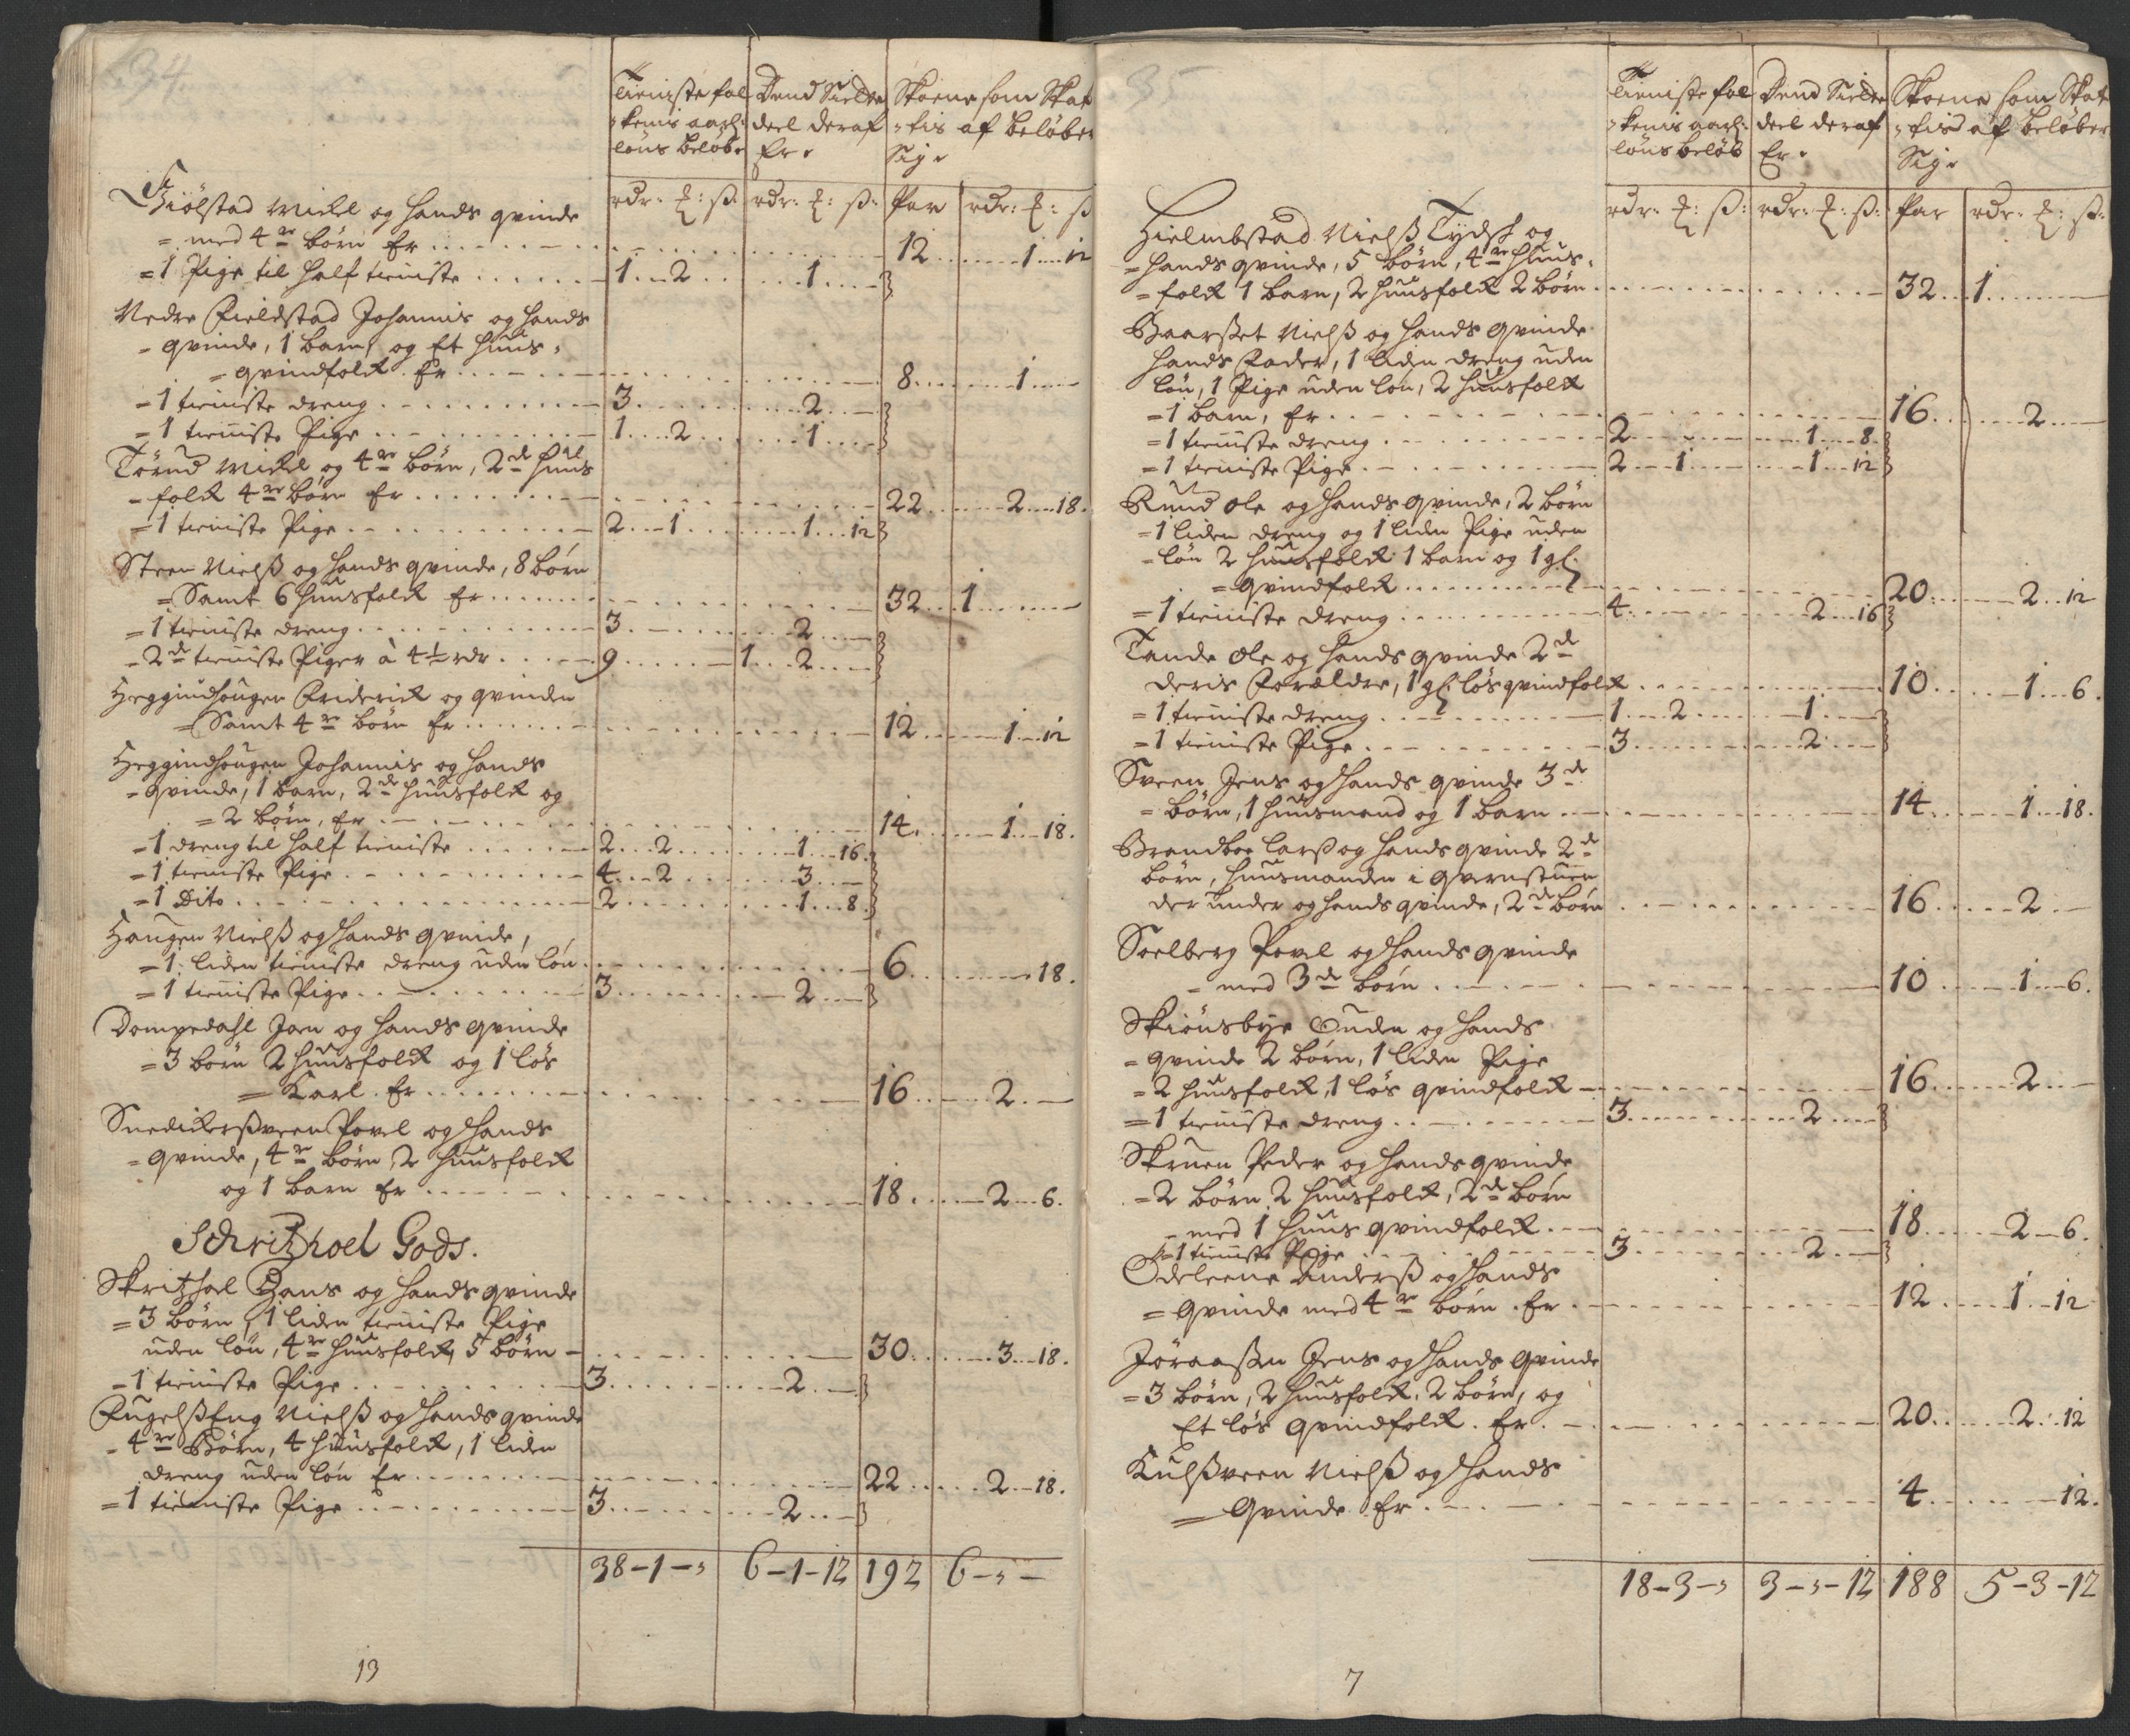 34.
Tieniste fol Dend Siette Skoene som Skat
-kenis aarl: deel deraf -tis af beløber
løns beløb Er Sig
rdr. ƶ: ß. rdr. ƶ: ß. Par rdr: ƶ: ß
Giølstad Mickel og hands qvinde
= med 4re børn Er 12 1 12
=1 Pige til half tieniste 1 2 1
Nedre Fieldstad Johannis og hands
- qvinde, 1 barn, og Et huus-
= qvindfolk Er 8 1
=1 tieniste dreng 3 2
=1 tieniste Pige 1 2 1
Mickel og 4re børn, 2de huus
- folk 4re børn Er 22 2 18.
=1 tieniste Pige 2 1 1 12
Steen Nielß og hands qvinde, 8 børn
= Samt 6 huusfolk Er 32 1
=1 tieniste dreng 3 2
- 2de tieniste Piger à 4½ rdr 9 1 2
Heggindhougen Friderick og qvinden
= Samt 4re børn Er 12 1 12
Heggindhougen Johannis og hands
- qvinde, 1 barn, 2de huusfolk og
= 2 børn, Er 14 1 18.
=1 dreng til half tieniste 2 2 1 16
=1 tieniste Pige 4 2 3
=1 Dito 2 1 8
Haugen Nielß og hands qvinde,
=1: liden tieniste dreng uden løn 6 18.
=1 tieniste Pige 3 2
Dompedahl Joen og hands qvinde
=3 børn 2 huusfolk og 1 løs
= Karl. Er 16 2
Snedickerßveen Povel og hands
= qvinde, 4re børn 2 huusfolk
og 1 barn Er 18 2 6.
Schritzhoel Gods.
Skritzhol Hans og hands qvinde
=3 børn, 1 liden tieniste Pige
uden løn, 4re huusfolk, 5 børn 30 3 18.
=1 tieniste Pige 3 2
FugelßEng Nielß og hands qvinde
- 4re Børn, 4 huusfolk, 1 liden
dreng uden løn Er 22 2 18.
=1 tieniste Pige 3 2
38-1-" 6-1-12 192 6-"-
13
35
Tieniste fol Dend Siette Skoene som Skat
-kenis aarl: deel deraf -tis af beløber
løns beløb Er Sig
rdr. ƶ: ß: rdr. ƶ: ß: Par rdr. ƶ: ß:
Hielmbstad Nielß Tydsk og
= hands qvinde, 5 børn, 4re huus-
= folk 1 barn, 2 huusfolk 2 børn 32 1
Baarßet Nielß og hands qvinde
hands Fader, 1 liden dreng uden
løn, 1 Pige uden løn, 2 huusfolk
=1 barn, Er 16 2
=1 tieniste dreng 2 1 8
=1 tieniste Pige 2 1 1 12
Rund Ole og hands qvinde, 2 børn
=1 liden dreng og 1 liden Pige uden
- løn 2 huusfolk 1 barn og 1 gl
= qvindfolk 20 2 12
=1 tieniste dreng 4 2 16
Tande Ole og hands qvinde 2de
deris Forældre, 1 gl løsqvindfolk 10 1 6.
=1 tieniste dreng 1 2 1
=1 tieniste Pige 3 2
Sveen Jens og hands qvinde 3de
= børn, 1 huusmand og 1 barn 14 1 18.
Brendboe Larß og hands qvinde 2de
børn, huusmanden i qvernstuen
der under og hands qvinde, 2de børn 16 2
Soelberg Povel og hands qvinde
- med 3de børn 10 1 6.
Skiønsbye Ouden og hands
- qvinde 2 børn, 1 liden Pige
- 2 huusfolk, 1 løs qvindfolk 16 2
=1 tieniste dreng 3 2
Skruen Peder og hands qvinde
- 2 børn, 2 huusfolk, 2de børn
- med 1 huus qvindfolk 18 2 6.
=1 tieniste Pige 3 2
Ødeleene Anderß og hands
= qvinde med 4re børn. Er 12 1 12
Jøraaßen Jens og hands qvinde
=3 børn, 2 huusfolk, 2 børn, og
Et løs qvindfolk. Er 20 2 12
Kulßveen Nielß og hands
= qvinde Er 4 12.
18-3-" 3-"-12 188 5-3-12
7